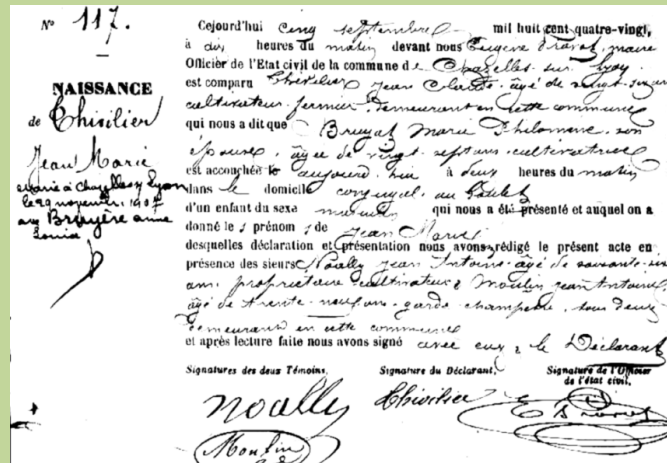 N° 117.
NAISSANCE
de Chivilier
Jean Marie
marié à Chazelles s/ Lyon
le 29 novembre 1907
avec Bruyère anne
Louise
Cejourd'hui cinq septembre mil huit cent quatre-vingt,
à dix heures du matin devant nous Eugène Dravot, maire
Officier de l'Etat civil de la commune de Chazelles sur Lyon
est comparu Chivilier Jean Claude âgé de vingt
cultivateur fermier demeurant en cette commune
qui nous a dit que Bruyat Marie Philomène son
épouse, âgée de vingt sept ans cultivatrice
est accouchée le aujourd'hui à deux heures du matin
dans le domicile conjugal, au
d'un enfant du sexe masculin qui nous a été présenté et auquel on a
donné le s prénom s de Jean Marie
desquelles déclaration et présentation nous avons rédigé le présent acte en
présence des sieurs Noally Jean Antoine âgé de soixante six
ans propriétaire cultivateur & Moulin Jean Antoine
âgé de trente neuf ans garde champêtre, tous deux
demeurant en cette commune
et après lecture faite nous avons signé avec eux & le Déclarant
Signatures des deux Témoins. Signature du Déclarant, Signature de l'Officier
de l'état civil,
Noally Chivilier E Dravot
Moulin